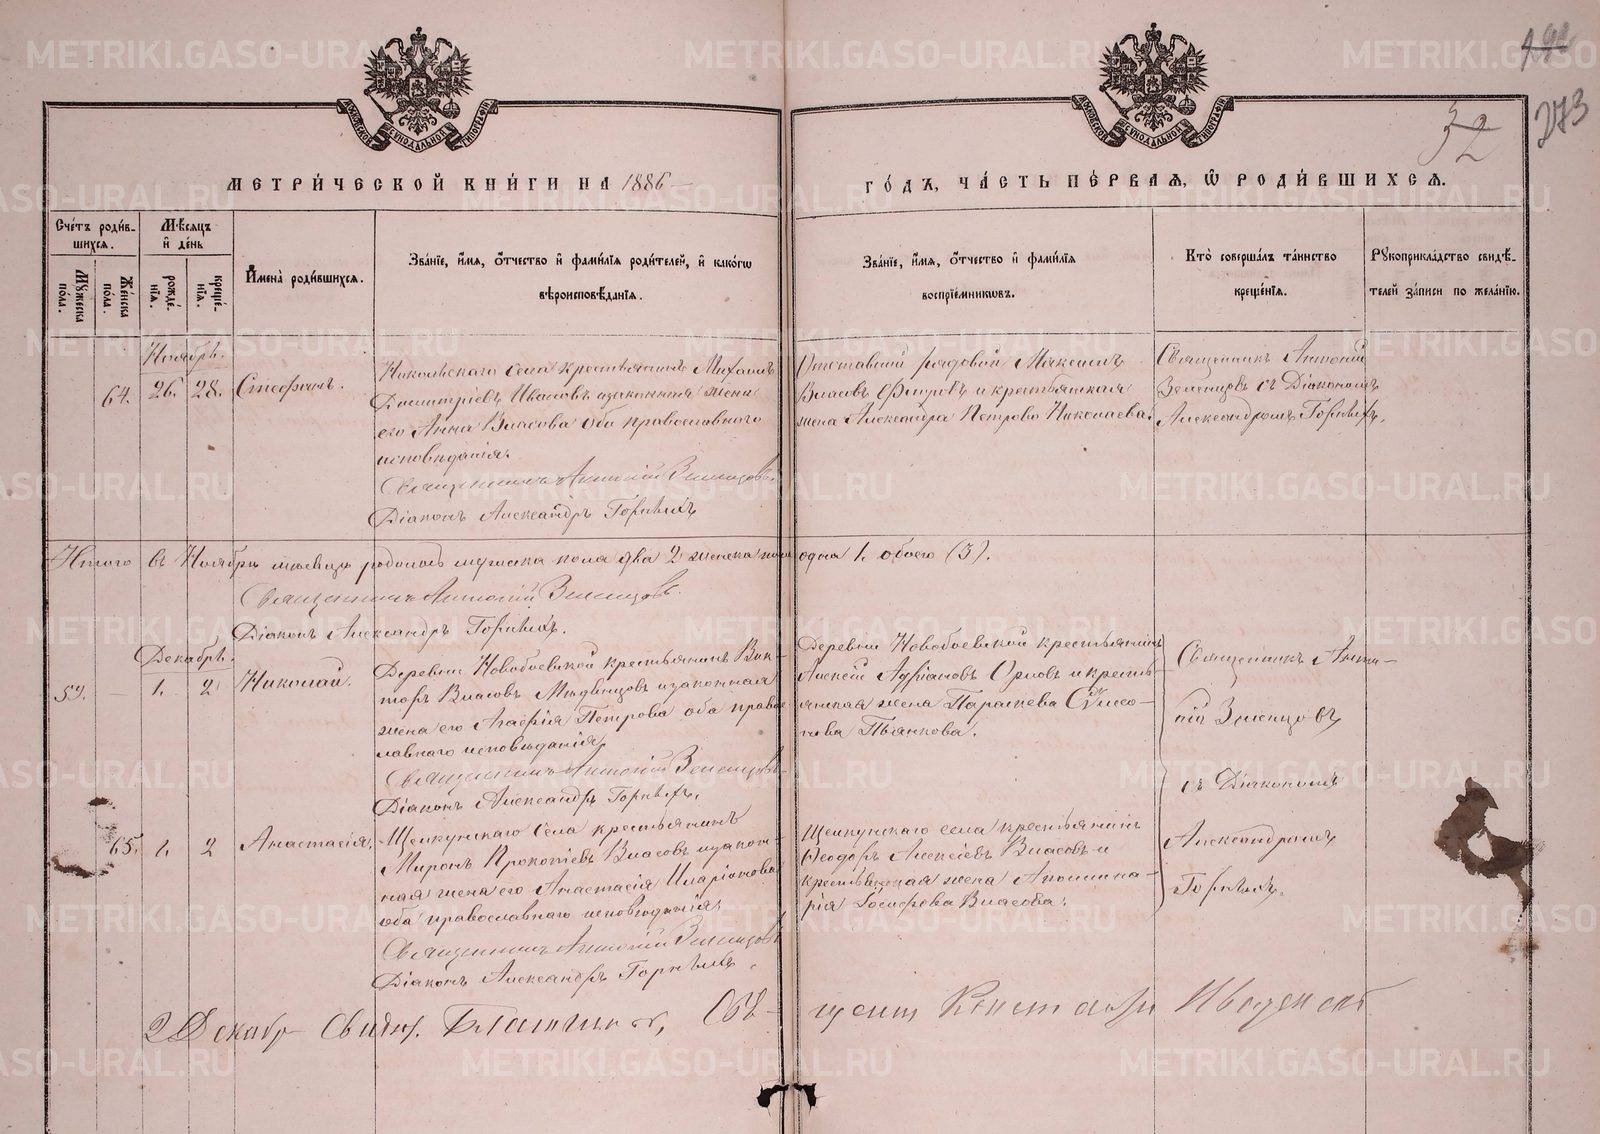 METRIKI.GASO-URAL.RU
273
32
МОСКОВСКОЙ СѴНОДАЛЬНОЙ ТИПОГРАФІИ
МОСКОВСКОЙ СѴНОДАЛЬНОЙ ТИПОГРАФІИ
МЕТРИ́ЧЕСКОЙ КНИ́ГИ НА 1886
ГО́ДЪ, ЧА́СТЬ ПЕ́РВАЯ, Ѡ РОДИ́ВШИХСЯ.
Сче́тъ роди́в-
шихся.
Мѣсяцъ
и҆ де́нь
Мꙋжеска
по́ла.
Же́нска
по́ла.
рожде́-
нїѧ.
креще́-
нїѧ.
И҆мена̀ роди́вшихся.
Зва́нїе, и҆́мѧ, ѻ҆́тчество и҆ фами́лїѧ роди́телей, и҆ како́гѡ
вѣроисповѣ́данїѧ.
Зва́нїе, и҆́мѧ, ѻ҆́тчество и҆ фами́лїѧ
воспрїе́мникѡвъ.
Кто̀ соверша́лъ та́инство
креще́нїѧ.
Рꙋкоприкла́дство свидѣ́-
телей за́писи по жела́нїю.
Ноябрь.
64. 26. 28.
Никольскаго села крестьянинъ Михаилъ
Димитріевъ Ивановъ и законная жена
его Анна Власова оба православнаго
исповѣданія.
Священникъ Антоній Земенцовъ
Діаконъ Александръ Горныхъ
Отставный рядовой Максимъ
Власовъ и крестьянская
жена Александра Петрова Николаева.
Священникъ Антоній
Земенцовъ съ Діакономъ
Александромъ Горныхъ.
Итого въ Ноябрѣ мѣсяцѣ родилось мужска пола два 2 женска пола одна 1. обоего (3).
Священникъ Антоній Земенцовъ.
Діаконъ Александръ Горныхъ.
Декабрь.
59. – 1. 2 Николай.
Деревни Новобоевской крестьянинъ Вик-
торъ Власовъ Мѣдвѣнцовъ и законная
жена его Агафія Петрова оба право-
славнаго исповѣданія.
Священникъ Антоній Земенцовъ
Діаконъ Александръ Горныхъ.
Деревни Новобоевской крестьянинъ
Алексій Адріановъ Орловъ и кресть-
янская жена Параскева Симео-
нова Пьянкова.
Священникъ Анто-
ній Земенцовъ
съ Діакономъ
Александромъ
Горныхъ.
65. 1. 2 Анастасія.
Щелкунскаго села крестьянинъ
Миронъ Прокопіевъ Власовъ и закон-
ная жена его Анастасія Иларіонова
оба православнаго исповѣданія.
Священникъ Антоній Земенцовъ
Діаконъ Александръ Горныхъ.
Щелкунскаго села крестьянинъ
Ѳеодоръ Алексіевъ Власовъ и
крестьянская жена Аполлина-
рія Іосифова Власова.
2 Декабр